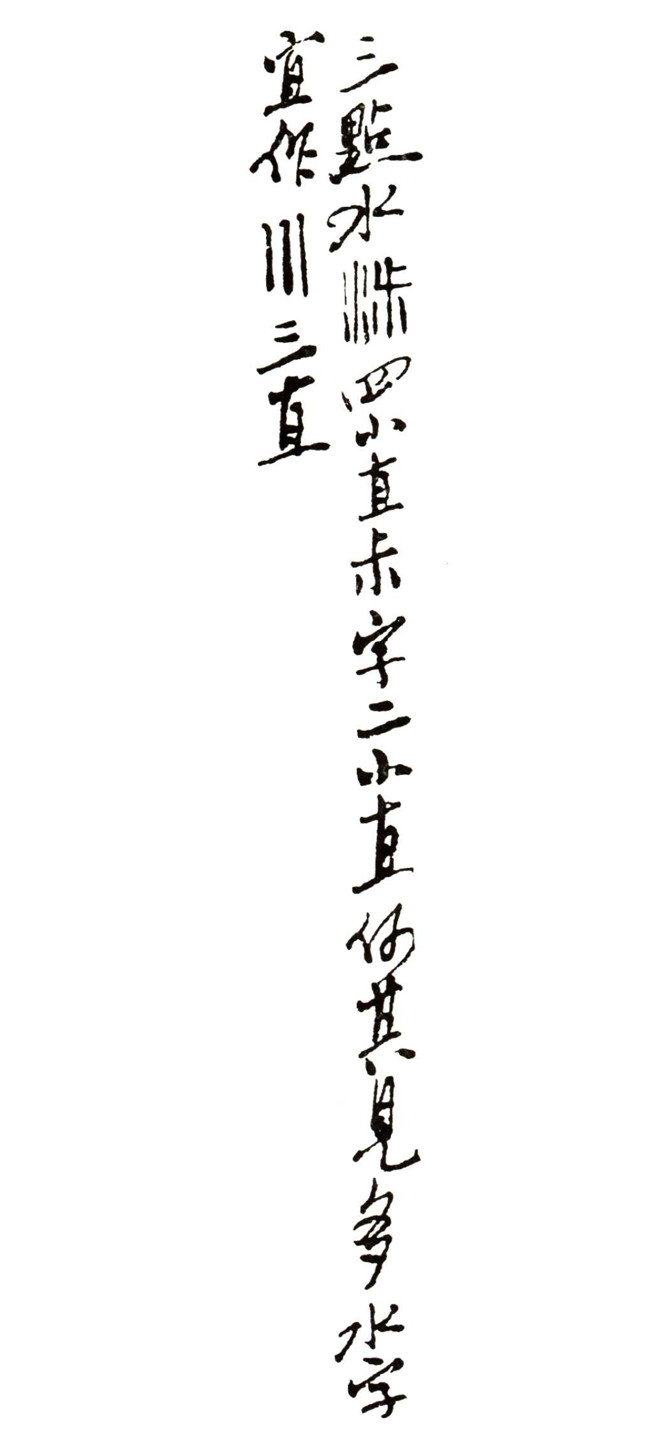 三點水四小直尗字二小直何其見多水字
宜作川三直